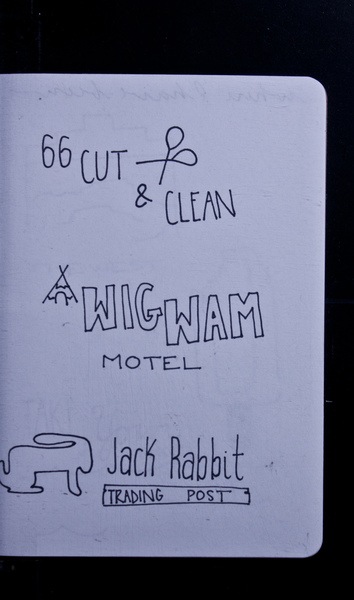 66 CUT
& CLEAN
WIGWAM
MOTEL
Jack Rabbit
TRADING POST